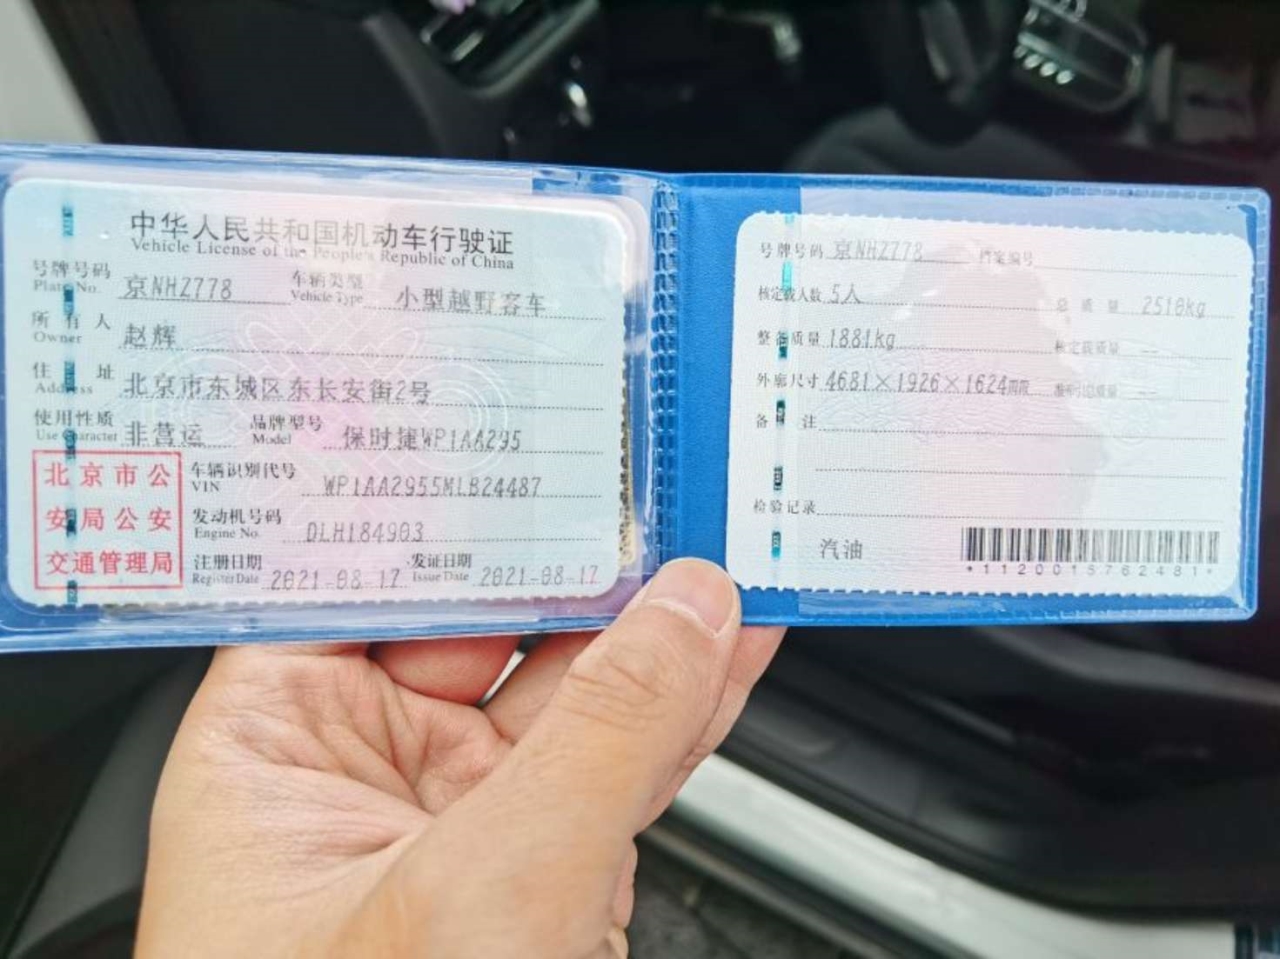 中华人民共和国机动车行驶证
Vehicle License of the People's Republic of China
号牌号码 京NHZ778 车辆类型 小型越野客车
Plate No. Vehicle Type
所有人 赵辉
Owner
住址 北京市东城区东长安街2号
Address
使用性质 非营运 品牌型号 保时捷WP1AA295
Use Character Model
北京市公
安局公安
交通管理局
车辆识别代号 WP1AA2955MLB24487
VIN
发动机号码 DLH184903
Engine No.
注册日期 2021-08-17 发证日期 2021-08-17
Register Date Issue Date
号牌号码 京NHZ778 档案编号
核定载人数 5人 总质量 2518kg
整备质量 1881kg 核定载质量 --
外廓尺寸 4681×1926×1624mm 准牵引总质量 --
备注
检验记录
汽油
*1120015762481*